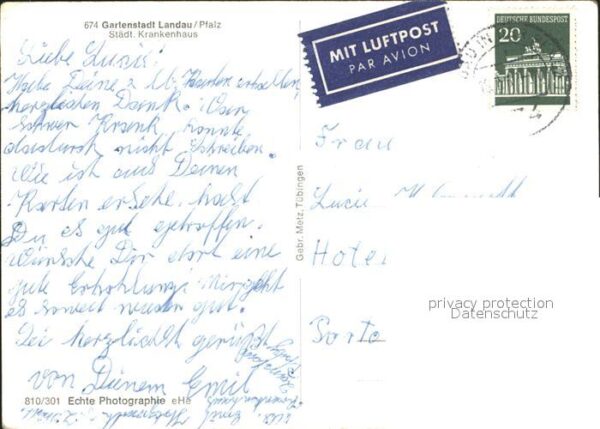 674 Gartenstadt Landau/Pfalz
Städt. Krankenhaus
MIT LUFTPOST
PAR AVION
DEUTSCHE BUNDESPOST
20
Liebe Luzie!
Habe Deine 2 lb. Karten erhalten,
herzlichen Dank. War
schwer Krank, konnte
dadurch nicht schreiben.
Wie ich aus Deinen
Karten ersehe, hast
Du es gut getroffen.
Wünsche Dir dort eine
gute Erholung. Mir geht
es soweit wieder gut.
Sei herzlichst gegrüßt
von Deinem Emil
810/301 Echte Photographie eHe
Gebr. Metz, Tübingen
Frau
Lucie
Hotel
Porto
privacy protection
Datenschutz